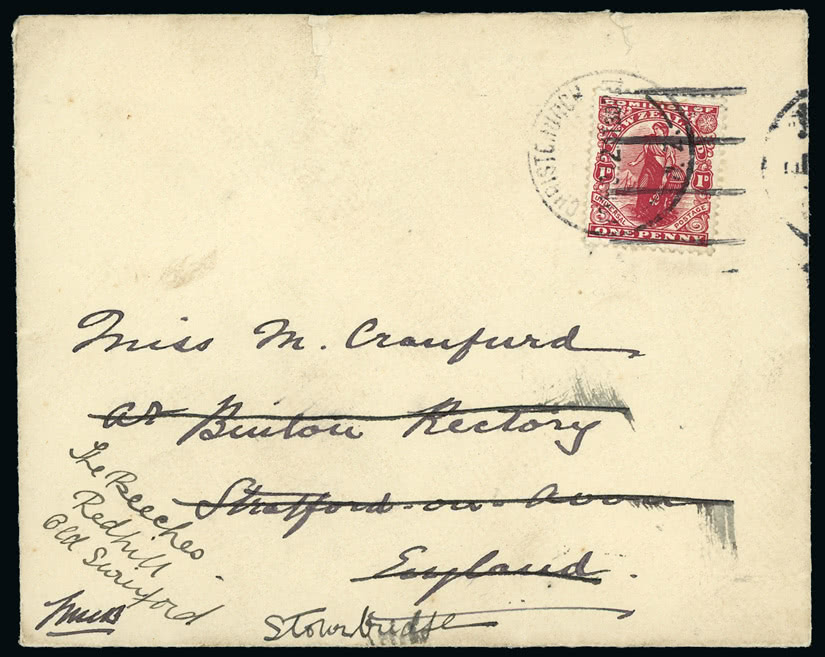 CHRISTCHURCH
N.Z.
DOMINION OF
NEW ZEALAND
1D 1D
UNIVERSAL POSTAGE
ONE PENNY
Miss M. Craufurd
at Binton Rectory
Stratford-on-Avon
England.
The Beeches
Redhill
Old Swinford
Stourbridge